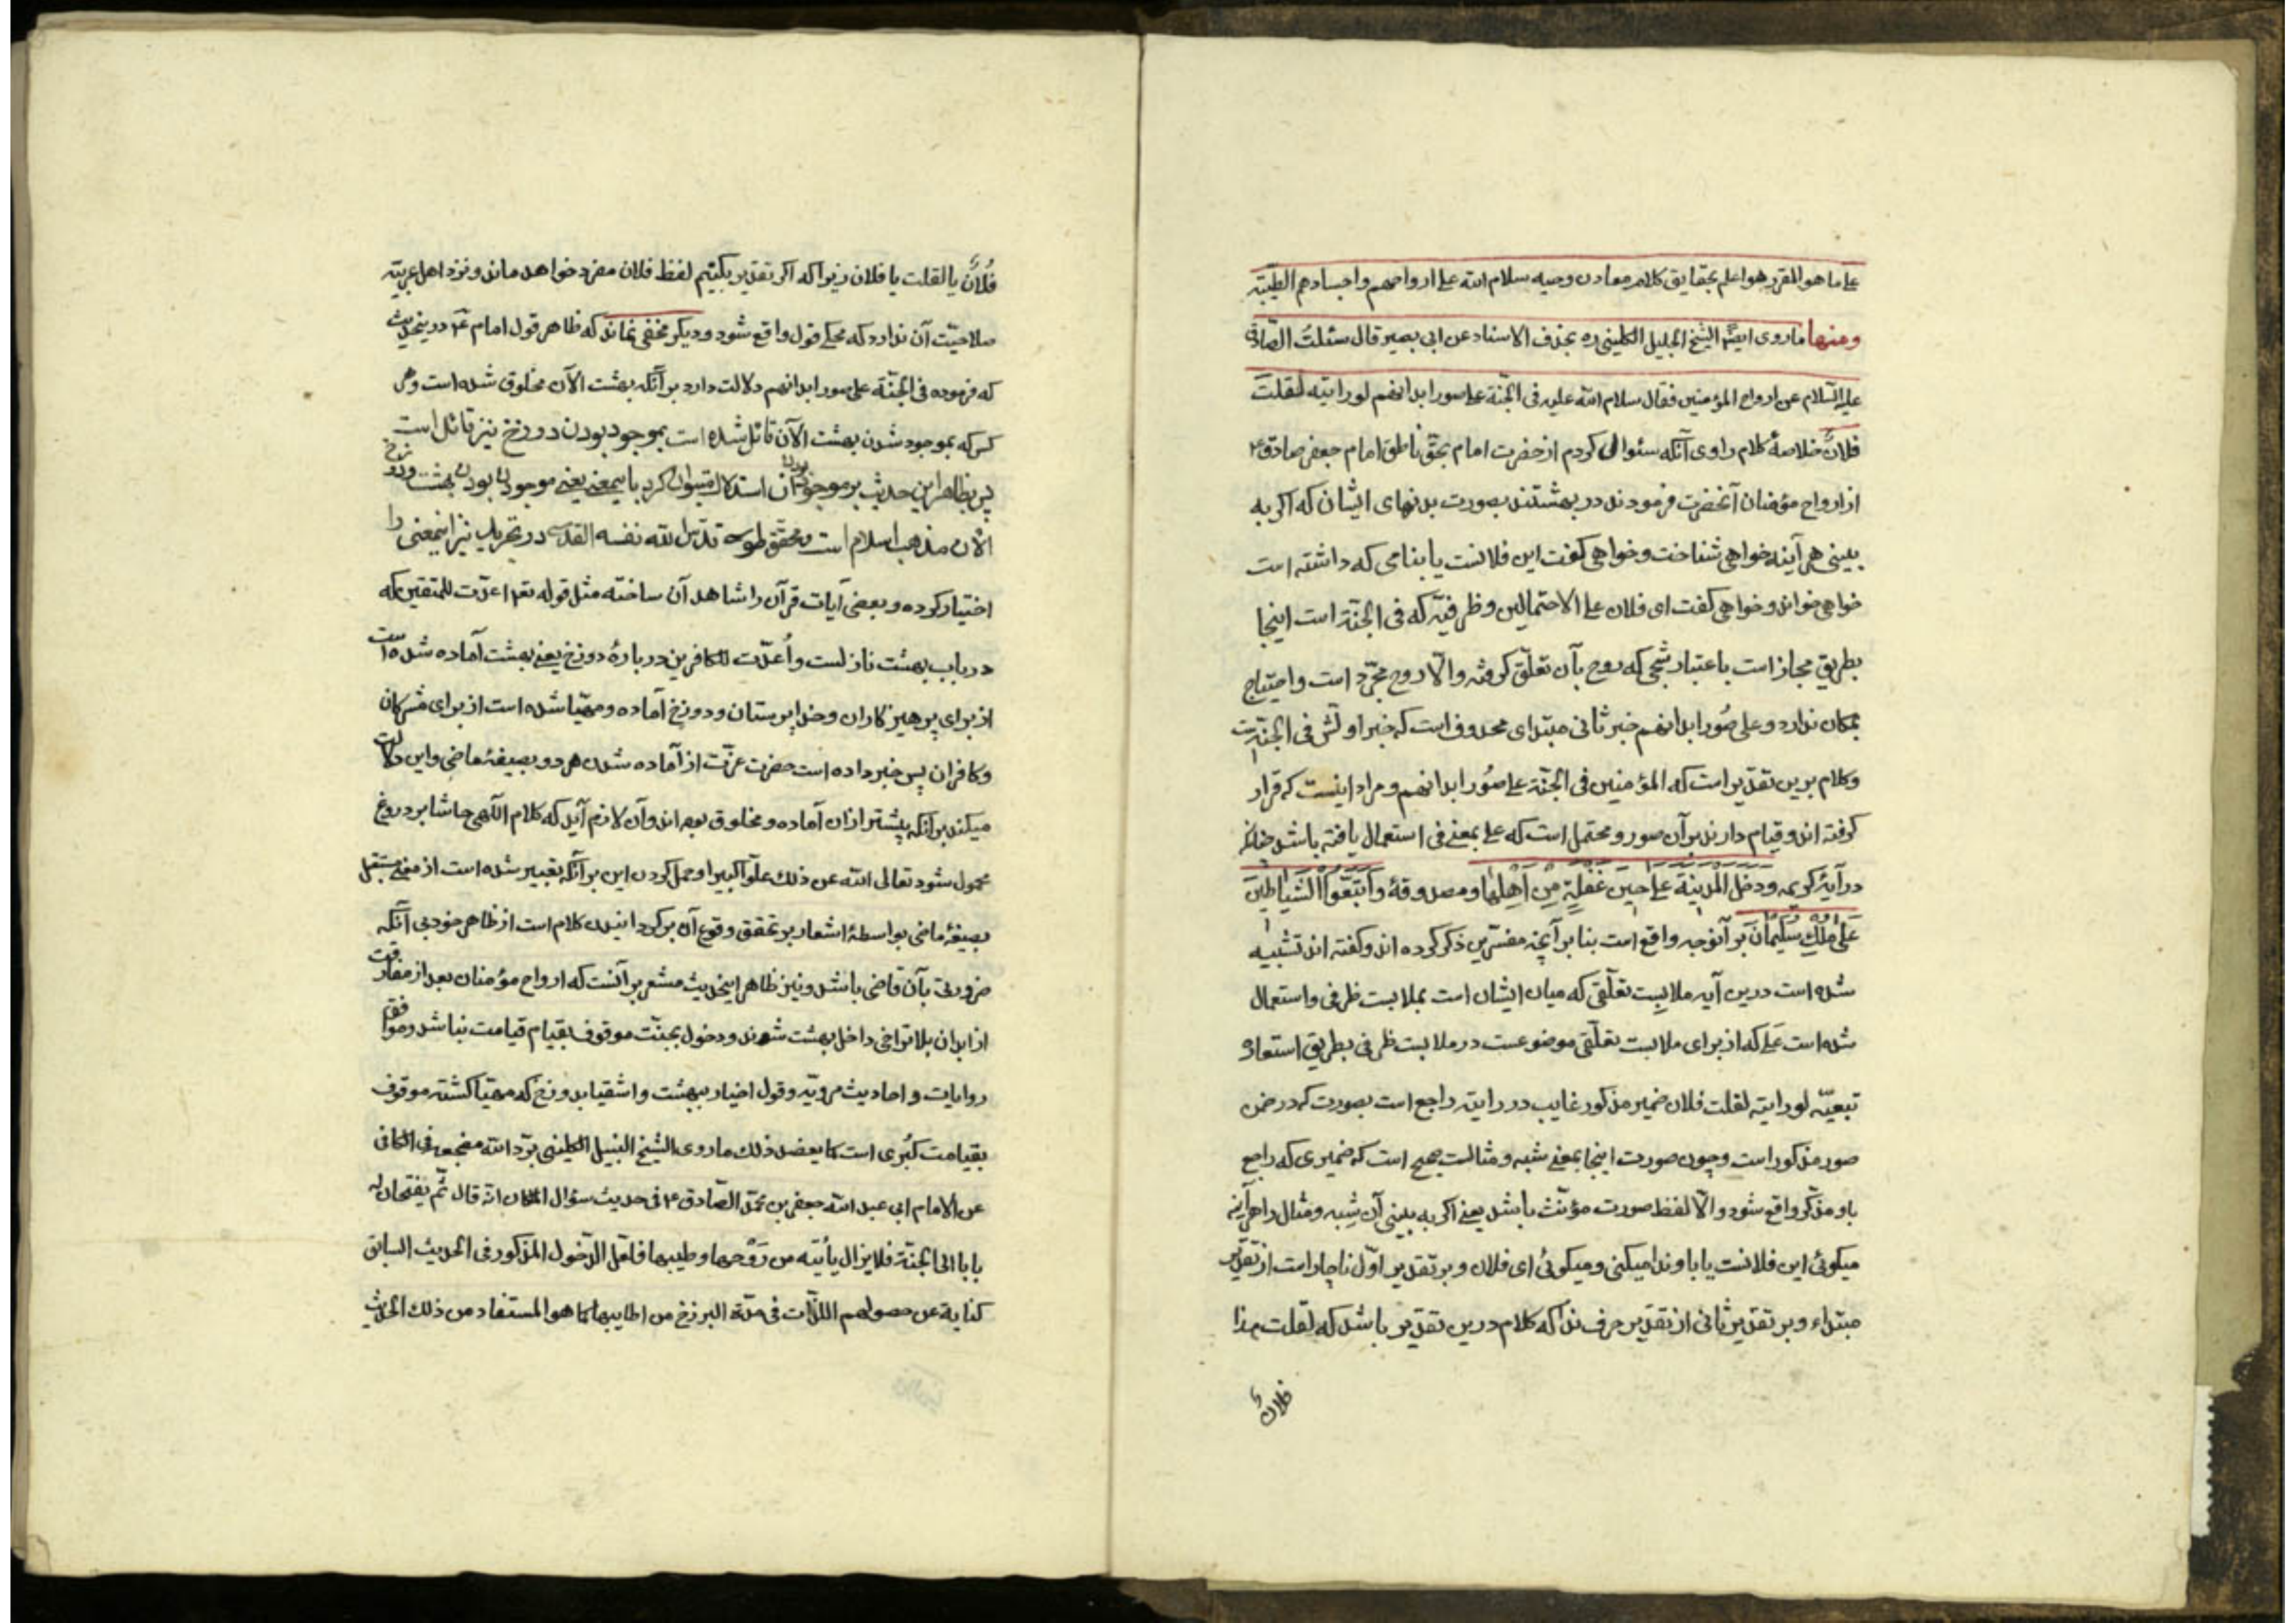 علی ما هو المقرر هو اعلم بحقایق کلام معادن وحیه سلام الله علی ارواحهم واجسادهم الطیبّه
ومنها ما روی ایضًا الشیخ الجلیل الکلینی ره بحذف الاسناد عن ابی بصیر قال سئلتُ الصّادق
علیه السّلام عن ارواح المؤمنین فقال سلام الله علیه فی الجنّة علی صور ابدانهم لو رایته لقلتَ
فلانٌ خلاصهٔ کلام راوی آنکه سئوال کردم از حضرت امام بحقّ ناطق امام جعفر صادق ع
از ارواح مؤمنان آنحضرت فرمودند در بهشتند بصورت بدنهای ایشان که اکر به
بینی هر آینه خواهی شناخت وخواهی کفت این فلانست یا بنامی که داشته است
خواهی خواند وخواهی کفت ای فلان علی الاحتمالین وظرفیّه که فی الجنّة است اینجا
بطریق مجاز است باعتبار شبحی که روح بآن تعلّق کرفته والّا روح مجرّد است واحتیاج
بمکان ندارد وعلی صُور ابدانهم خبر ثانی مبتدای محذوف است که خبر اولش فی الجنّة است
وکلام برین تقدیر است که المؤمنین فی الجنّة علی صُور ابدانهم ومراد اینست که قرار
کرفته اند وقیام دارند بر آن صور ومحتمل است که علی بمعنی فی استعمال یافته باشد چنانچه
در آیهٔ کریمه ودَخَلَ المَدینَةَ عَلی حینِ غَفلَةٍ مِن اَهلِها ومصدوقهٔ وَاتَّبَعُوا الشَّیاطینَ
عَلی مُلکِ سُلَیمانَ بر آنوجه واقع است بنا بر آنچه مفسّرین ذکر کرده اند وکفته اند تشبیه
شده است درین آیه ملابست تعلّقی که میان ایشان است بملابست ظرفی واستعمال
شده است عَلی که از برای ملابست تعلّقی موضوعست در ملابست ظرفی بطریق استعاره
تبعیّه لو رایته لقلت فلان ضمیر مذکور غایب در رایته راجع است بصورت که در ضمن
صور مذکور است وچون صورت اینجا بمعنی شبه ومثالست صحیح است که ضمیری که راجع
باو مذکّر واقع شود والّا لفظ صورت مؤنّث باشد یعنی اکر به بینی آن شبه ومثال را هر آینه
میکوئی این فلانست یا باو ندا میکنی ومیکوئی ای فلان وبر تقدیر اوّل ناچار است از تقدیر
مبتداء وبر تقدیر ثانی از تقدیر حرف ندا که کلام درین تقدیر باشد که لقلت هذا
فلانٌ
فُلانٌ یا لقلت یا فلان زیرا که اکر تقدیر بکنیم لفظ فلان مفرد خواهد ماند ونزد اهل عربیّه
صلاحیّت آن ندارد که محکی قول واقع شود ودیکر مخفی نماند که ظاهر قول امام ع در اینحدیث
که فرموده فی الجنّة علی صور ابدانهم دلالت دارد بر آنکه بهشت الآن مخلوق شده است وهر
کس که بموجود شدن بهشت الآن قائل شده است بموجود بودن دوزخ نیز قائل است
پس بظاهر این حدیث بر موجود بودن آن استدلال میتوان کرد باینمعنی یعنی موجود بودن بهشت ودوزخ
الآن مذهب اسلام است ومحقق طوسی قدّس الله نفسه القدسی در تجرید نیز اینمعنی را
اختیار کرده وبعضی آیات قرآن را شاهد آن ساخته مثل قوله تع اعدّت للمتّقین که
در باب بهشت نازلست واُعدّت للکافرین در بارهٔ دوزخ یعنی بهشت آماده شده است
از برای پرهیزکاران وخدا پرستان ودوزخ آماده ومهیّا شده است از برای مشرکان
وکافران پس خبر داده است حضرت عزّت از آماده شدن هر دو بصیغهٔ ماضی واین دلالت
میکند بر آنکه پیشتر از ان آماده ومخلوق بوده اند وآن لازم آید که کلام اللّهی حاشا بر دروغ
محمول شود تعالی الله عن ذلك علوّاً کبیراً وحمل کردن این بر آنکه تعبیر شده است از معنی مستقبل
بصیغهٔ ماضی بواسطهٔ اشعار بر تحقق وقوع آن بر کردانیدن کلام است از ظاهر خود بی آنکه
ضرورتی بآن قاضی باشد ونیز ظاهر اینحدیث مشعر بر آنست که ارواح مؤمنان بعد از مفارقت
از ابدان بلا تراخی داخل بهشت شوند ودخول بجنّت موقوف بقیام قیامت نباشد وموافق
روایات واحادیث مرویّه وقول اخیار ببهشت واشقیا بدوزخ که مهیّا کشته موقوف
بقیامت کُبری است کما یعضد ذلك ما روی الشیخ النبیل الکلینی برّد الله مضجعه فی الکافی
عن الامام ابی عبد الله جعفر بن محمّد الصّادق ع فی حدیث سؤال الملکان انّه قال ثُم یفتحان له
بابا الی الجنّة فلا یزال یأتیه من رَوْحها وطیبها فلعلّ الدّخول المذکور فی الحدیث السابق
کنایة عن حصولهم اللذّات فی مدّة البرزخ من اطایبها کما هو المستفاد من ذلك الحدیث